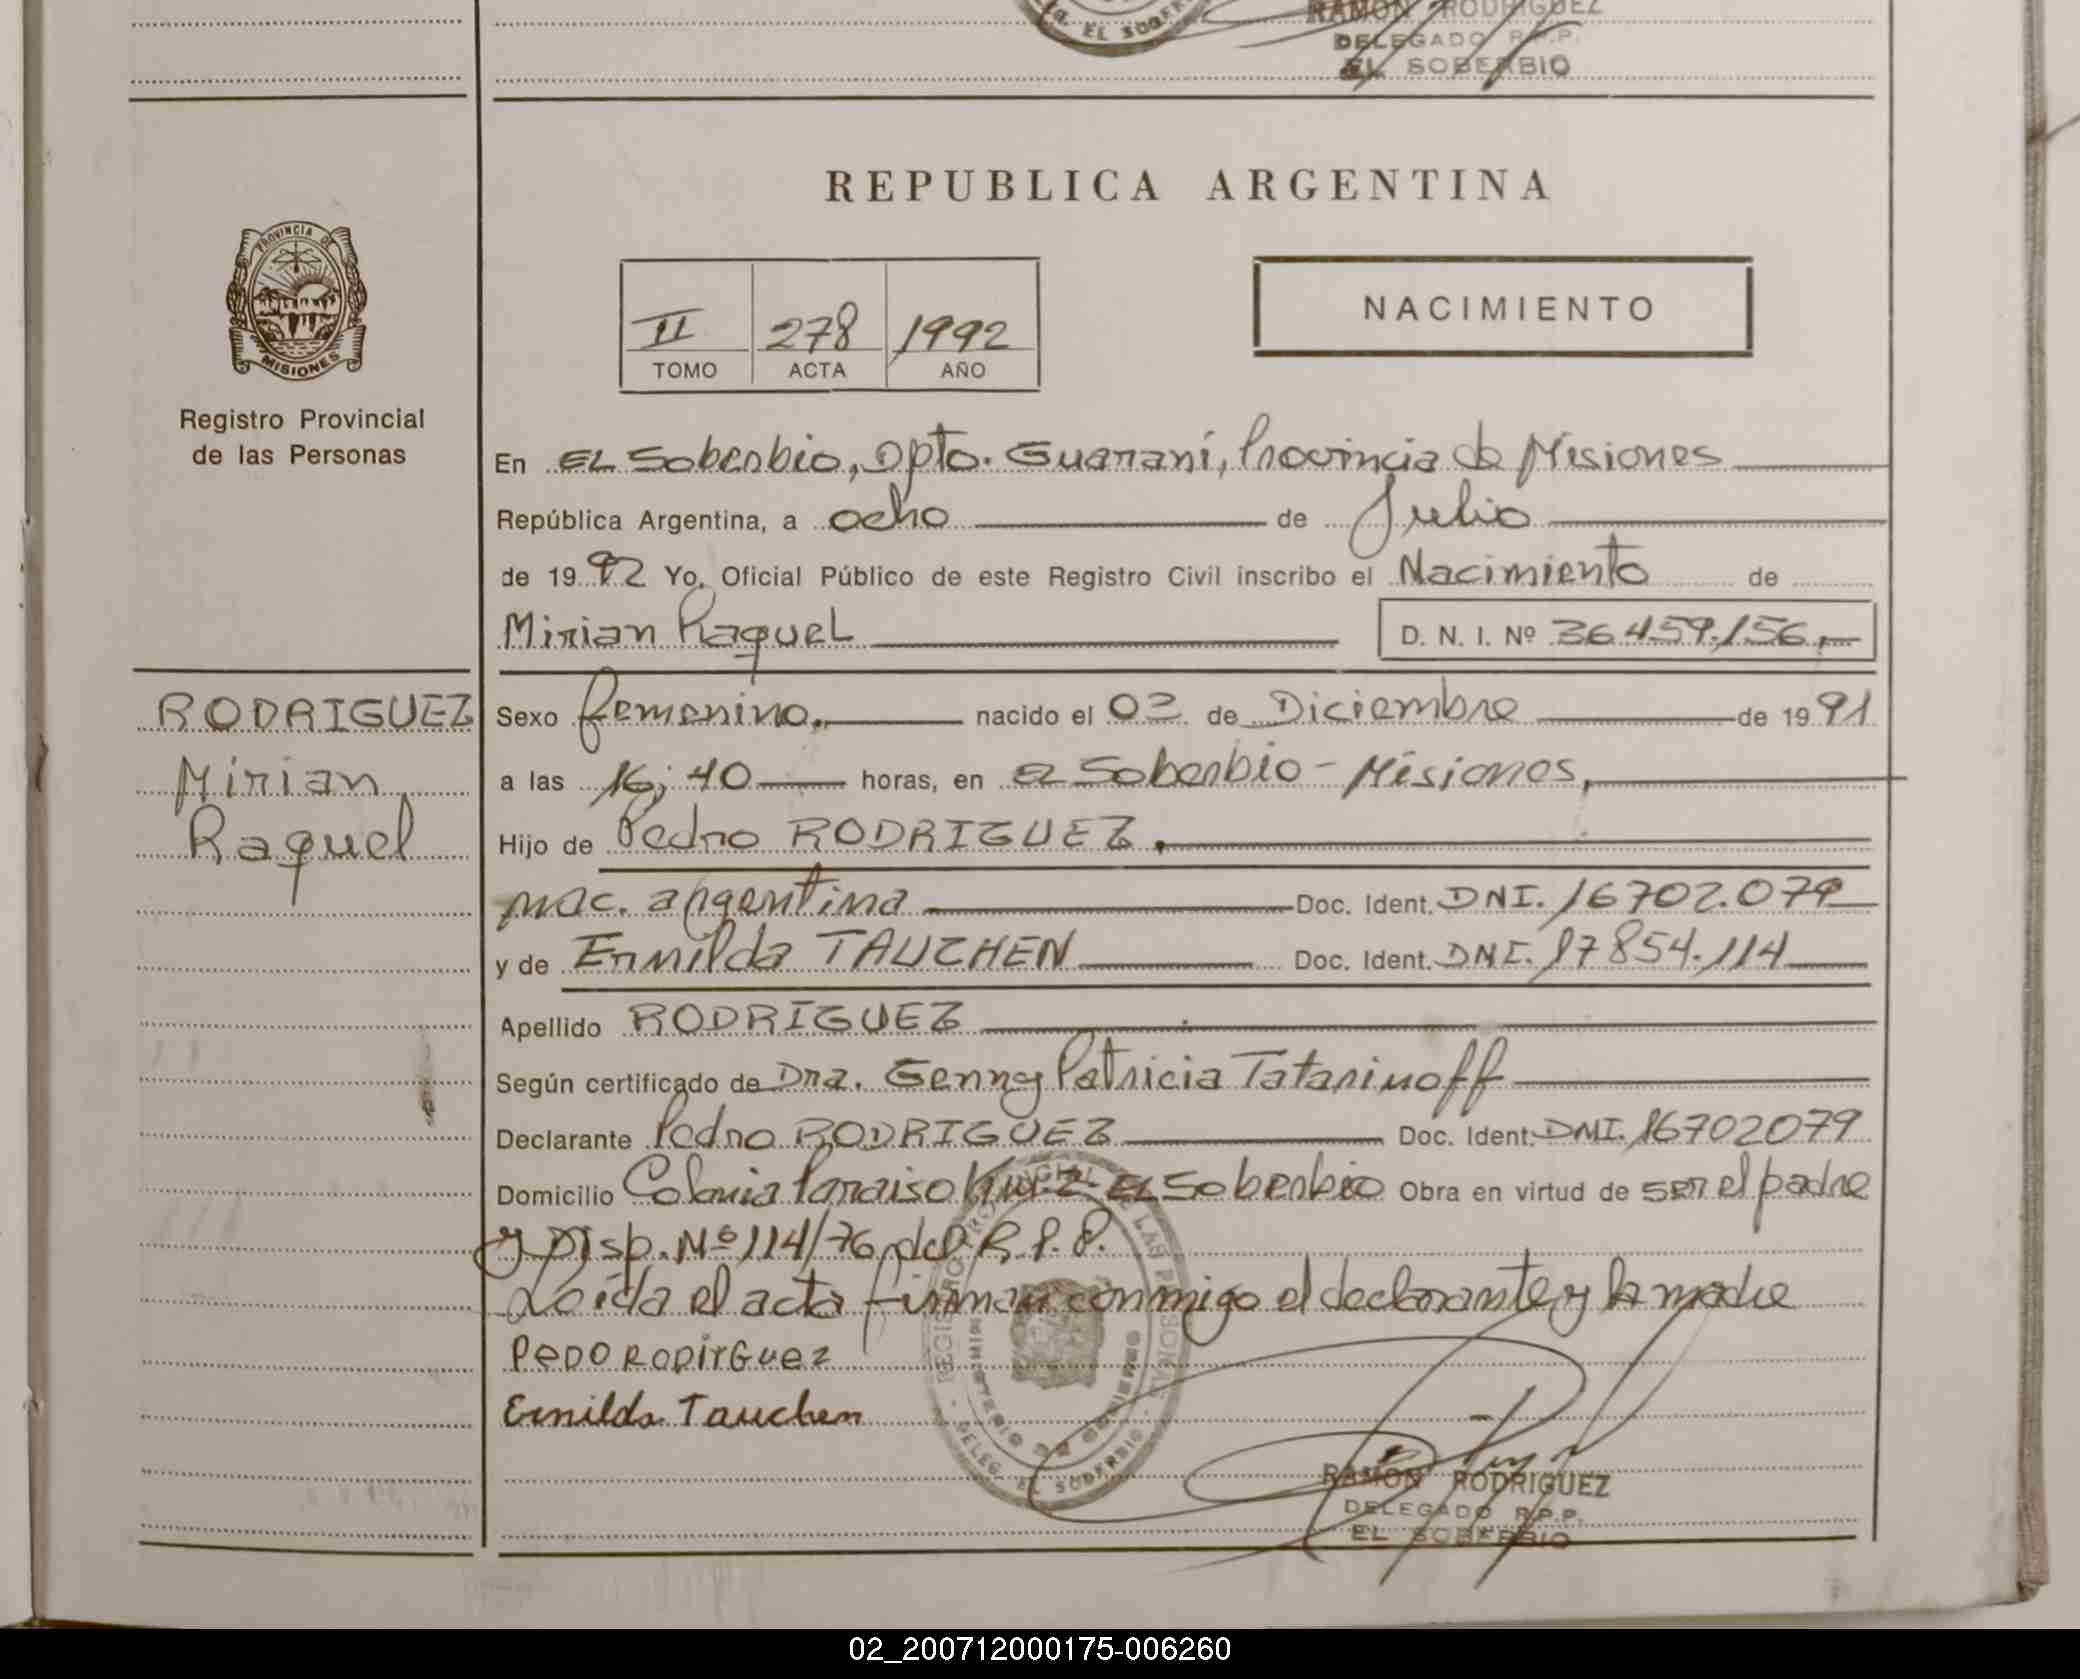 EL SOBER
RAMON RODRIGUEZ
DELEGADO R.P.P.
EL SOBERBIO
REPUBLICA ARGENTINA
PROVINCIA DE
MISIONES
Registro Provincial
de las Personas
II 278 1992
TOMO ACTA AÑO
NACIMIENTO
En EL Soberbio, Dpto. Guaraní, Provincia de Misiones
República Argentina, a ocho de Julio
de 1992 Yo, Oficial Público de este Registro Civil inscribo el Nacimiento de
Mirian Raquel D. N. I. Nº 36.459.156,-
RODRIGUEZ
Mirian
Raquel
Sexo femenino, nacido el 02 de Diciembre de 1991
a las 16; 40 horas, en EL Soberbio - Misiones,
Hijo de Pedro RODRIGUEZ,
nac. argentina Doc. Ident. DNI. 16702.079
y de Ermilda TAUCHEN Doc. Ident. DNI. 17854.114
Apellido RODRIGUEZ
Según certificado de Dra. Genny Patricia Tatarinoff
Declarante Pedro RODRIGUEZ Doc. Ident. DNI. 16702079
Domicilio Colonia Paraiso EL Soberbio Obra en virtud de ser el padre
y Disp. Nº 114/76 del R.P.P.
Leída el acta firman conmigo el declarante y la madre
PeDO RODirGuez
Ermilda Tauchen
REGISTRO PROVINCIAL DE LAS PERSONAS
MINISTERIO DE GOBIERNO
DELEG. EL SOBERBIO
RAMON RODRIGUEZ
DELEGADO R.P.P.
EL SOBERBIO
02_200712000175-006260